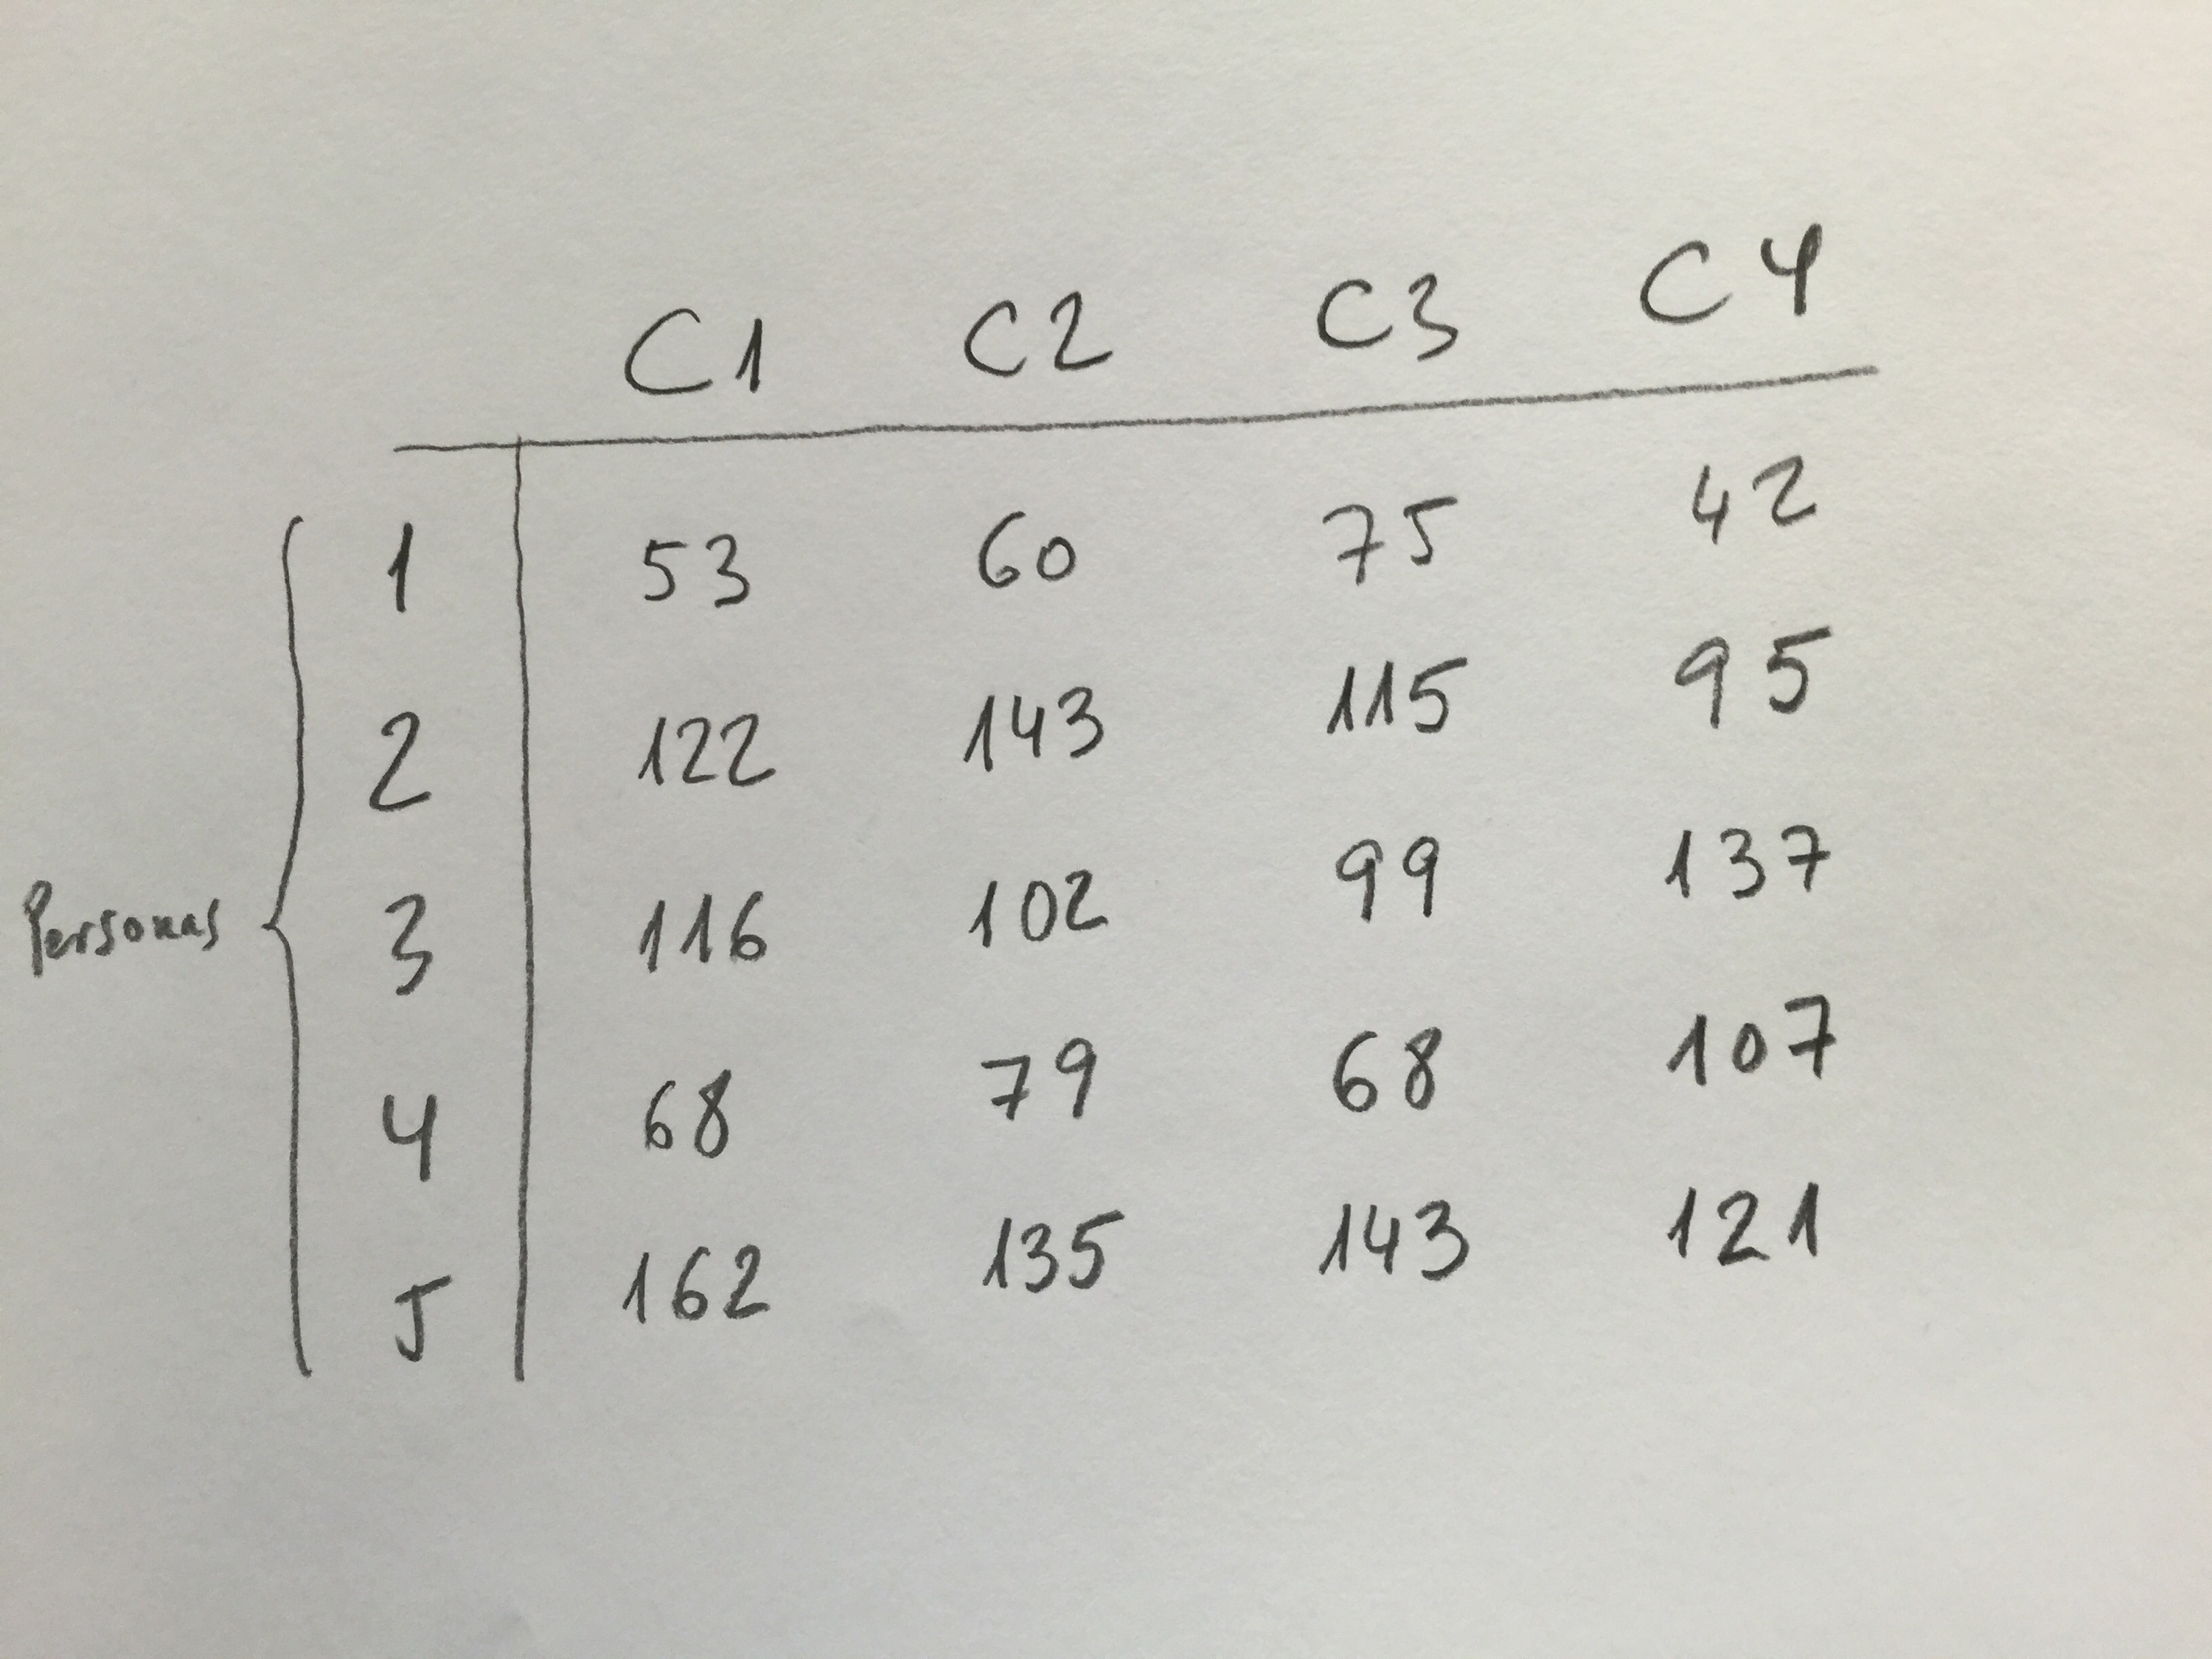 C1 C2 C3 C4
1 53 60 75 42
2 122 143 115 95
Personas 3 116 102 99 137
4 68 79 68 107
5 162 135 143 121